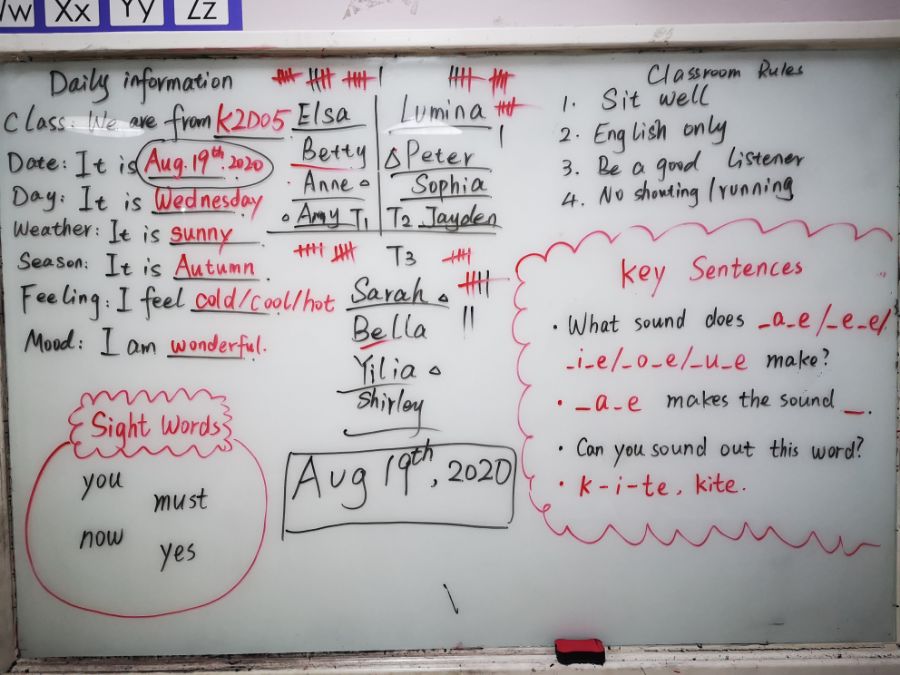 Ww Xx Yy Zz
Daily information
Class: We are from K2D05
Date: It is Aug. 19th. 2020
Day: It is Wednesday
Weather: It is sunny
Season: It is Autumn
Feeling: I feel cold/cool/hot
Mood: I am wonderful.
Elsa
Betty
Anne
Amy T1
Lumina
Peter
Sophia
T2 Jayden
T3
Sarah
Bella
Yilia
Shirley
Classroom Rules
1. Sit well
2. English only
3. Be a good listener
4. No shouting/running
Sight Words
you
must
now
yes
Aug 19th, 2020
Key Sentences
· What sound does _a_e/_e_e/
_i_e/_o_e/_u_e make?
· _a_e makes the sound _.
· Can you sound out this word?
· k-i-te, kite.